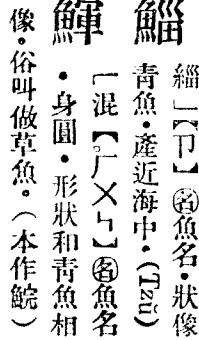 鯔
緇」【ㄗ】㊔魚名·狀像
青魚·產近海中·(Tzŭ)
鯶
「混【°ㄏㄨㄣ】㊔魚名
·身圓·形狀和青魚相
像。俗叫做草魚。(本作鯇)